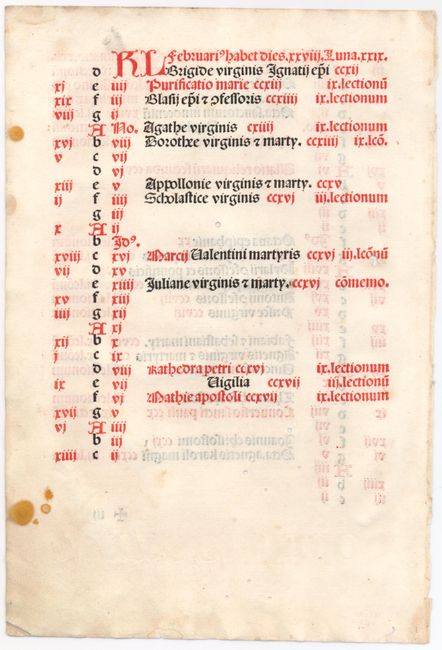 KL Februariꝰ habet dies.xxviij.Luna.xxix.
d Brigide virginis Ignatij ep̄i ccxij
xj e iiij Purificatio marie ccxiij ix.lectionum
xix f iij Blasij ep̄i ⁊ ꝯfessoris ccxiiij ix.lectionum
viij g ij
A No. Agathe virginis cxiiij ix.lectionum
xvj b viij Dorothee virginis ⁊ marty. ccxiiij ix.lcō.
v c vij
d vj
xiij e v Appollonie virginis ⁊ marty. ccxv
ij f iiij Scholastice virginis ccxvj iij.lectionum
g iij
x A ij
b Jdꝰ.
xviij c xvj Marcij Ualentini martyris ccxvj iij.lcōnū
vij d xv
e xiiij Juliane virginis ⁊ marty. ccxvj cōmemo.
xv f xiij
iiij g xij
A xj
xij b x
j c ix
d viij Kathedra petri ccxvj ix.lectionum
ix e vij Uigilia ccxvij iij.lectionū
f vj Mathie apostoli ccxvij ix.lectionum
xvij g v
vj A iiij
b iij
xiiij c ij